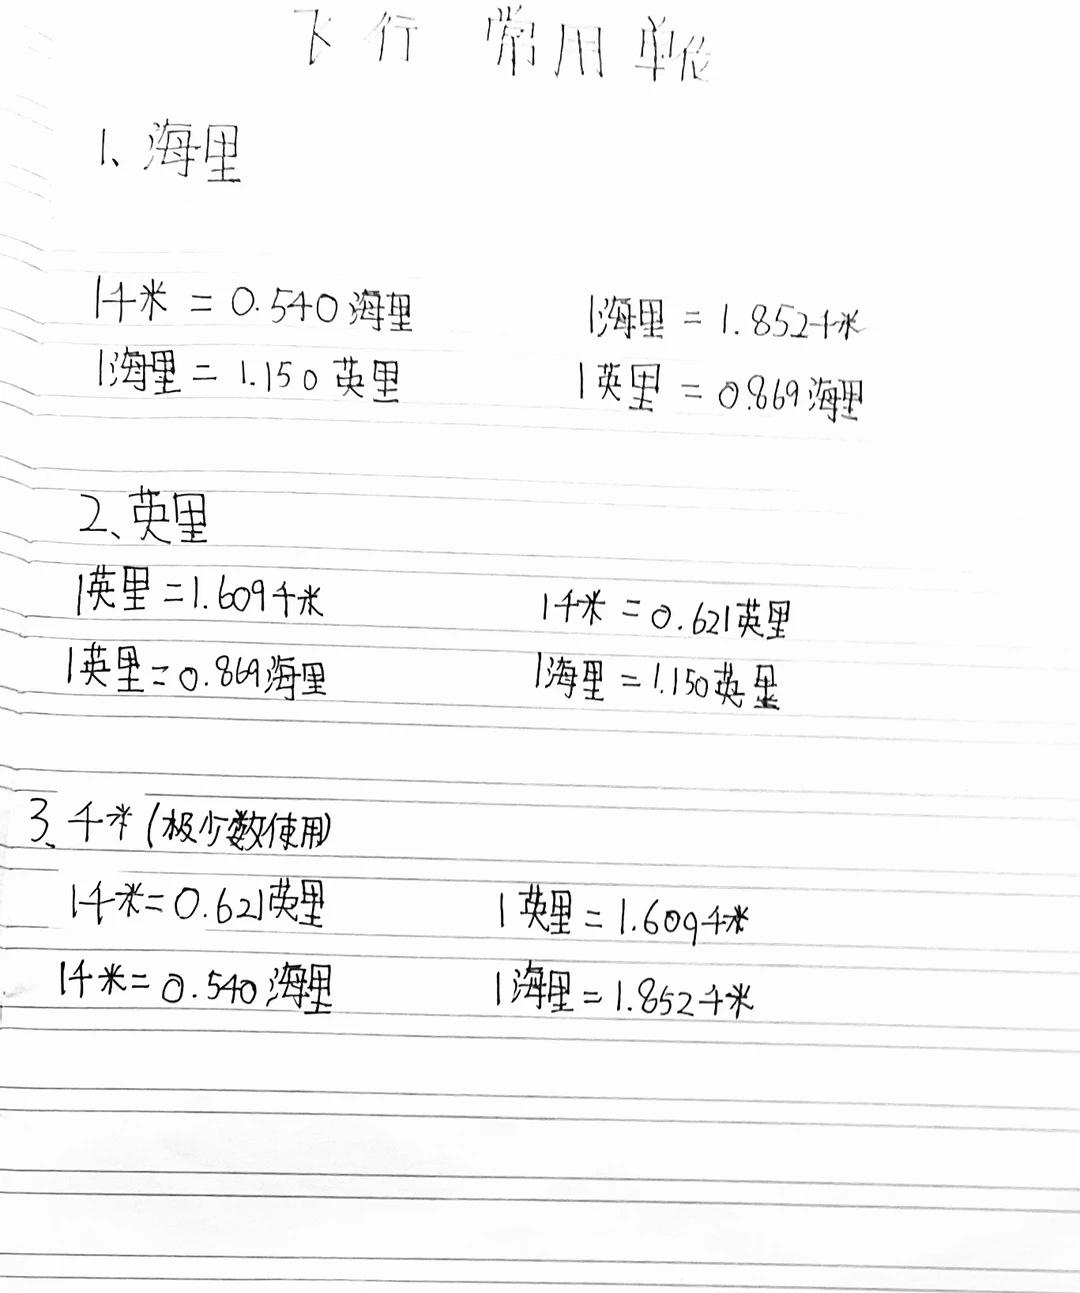 飞行 常用单位
1、海里
1千米 = 0.540海里 1海里 = 1.852千米
1海里 = 1.150英里 1英里 = 0.869海里
2、英里
1英里 = 1.609千米 1千米 = 0.621英里
1英里 = 0.869海里 1海里 = 1.150英里
3、千米(极少数使用)
1千米 = 0.621英里 1英里 = 1.609千米
1千米 = 0.540海里 1海里 = 1.852千米